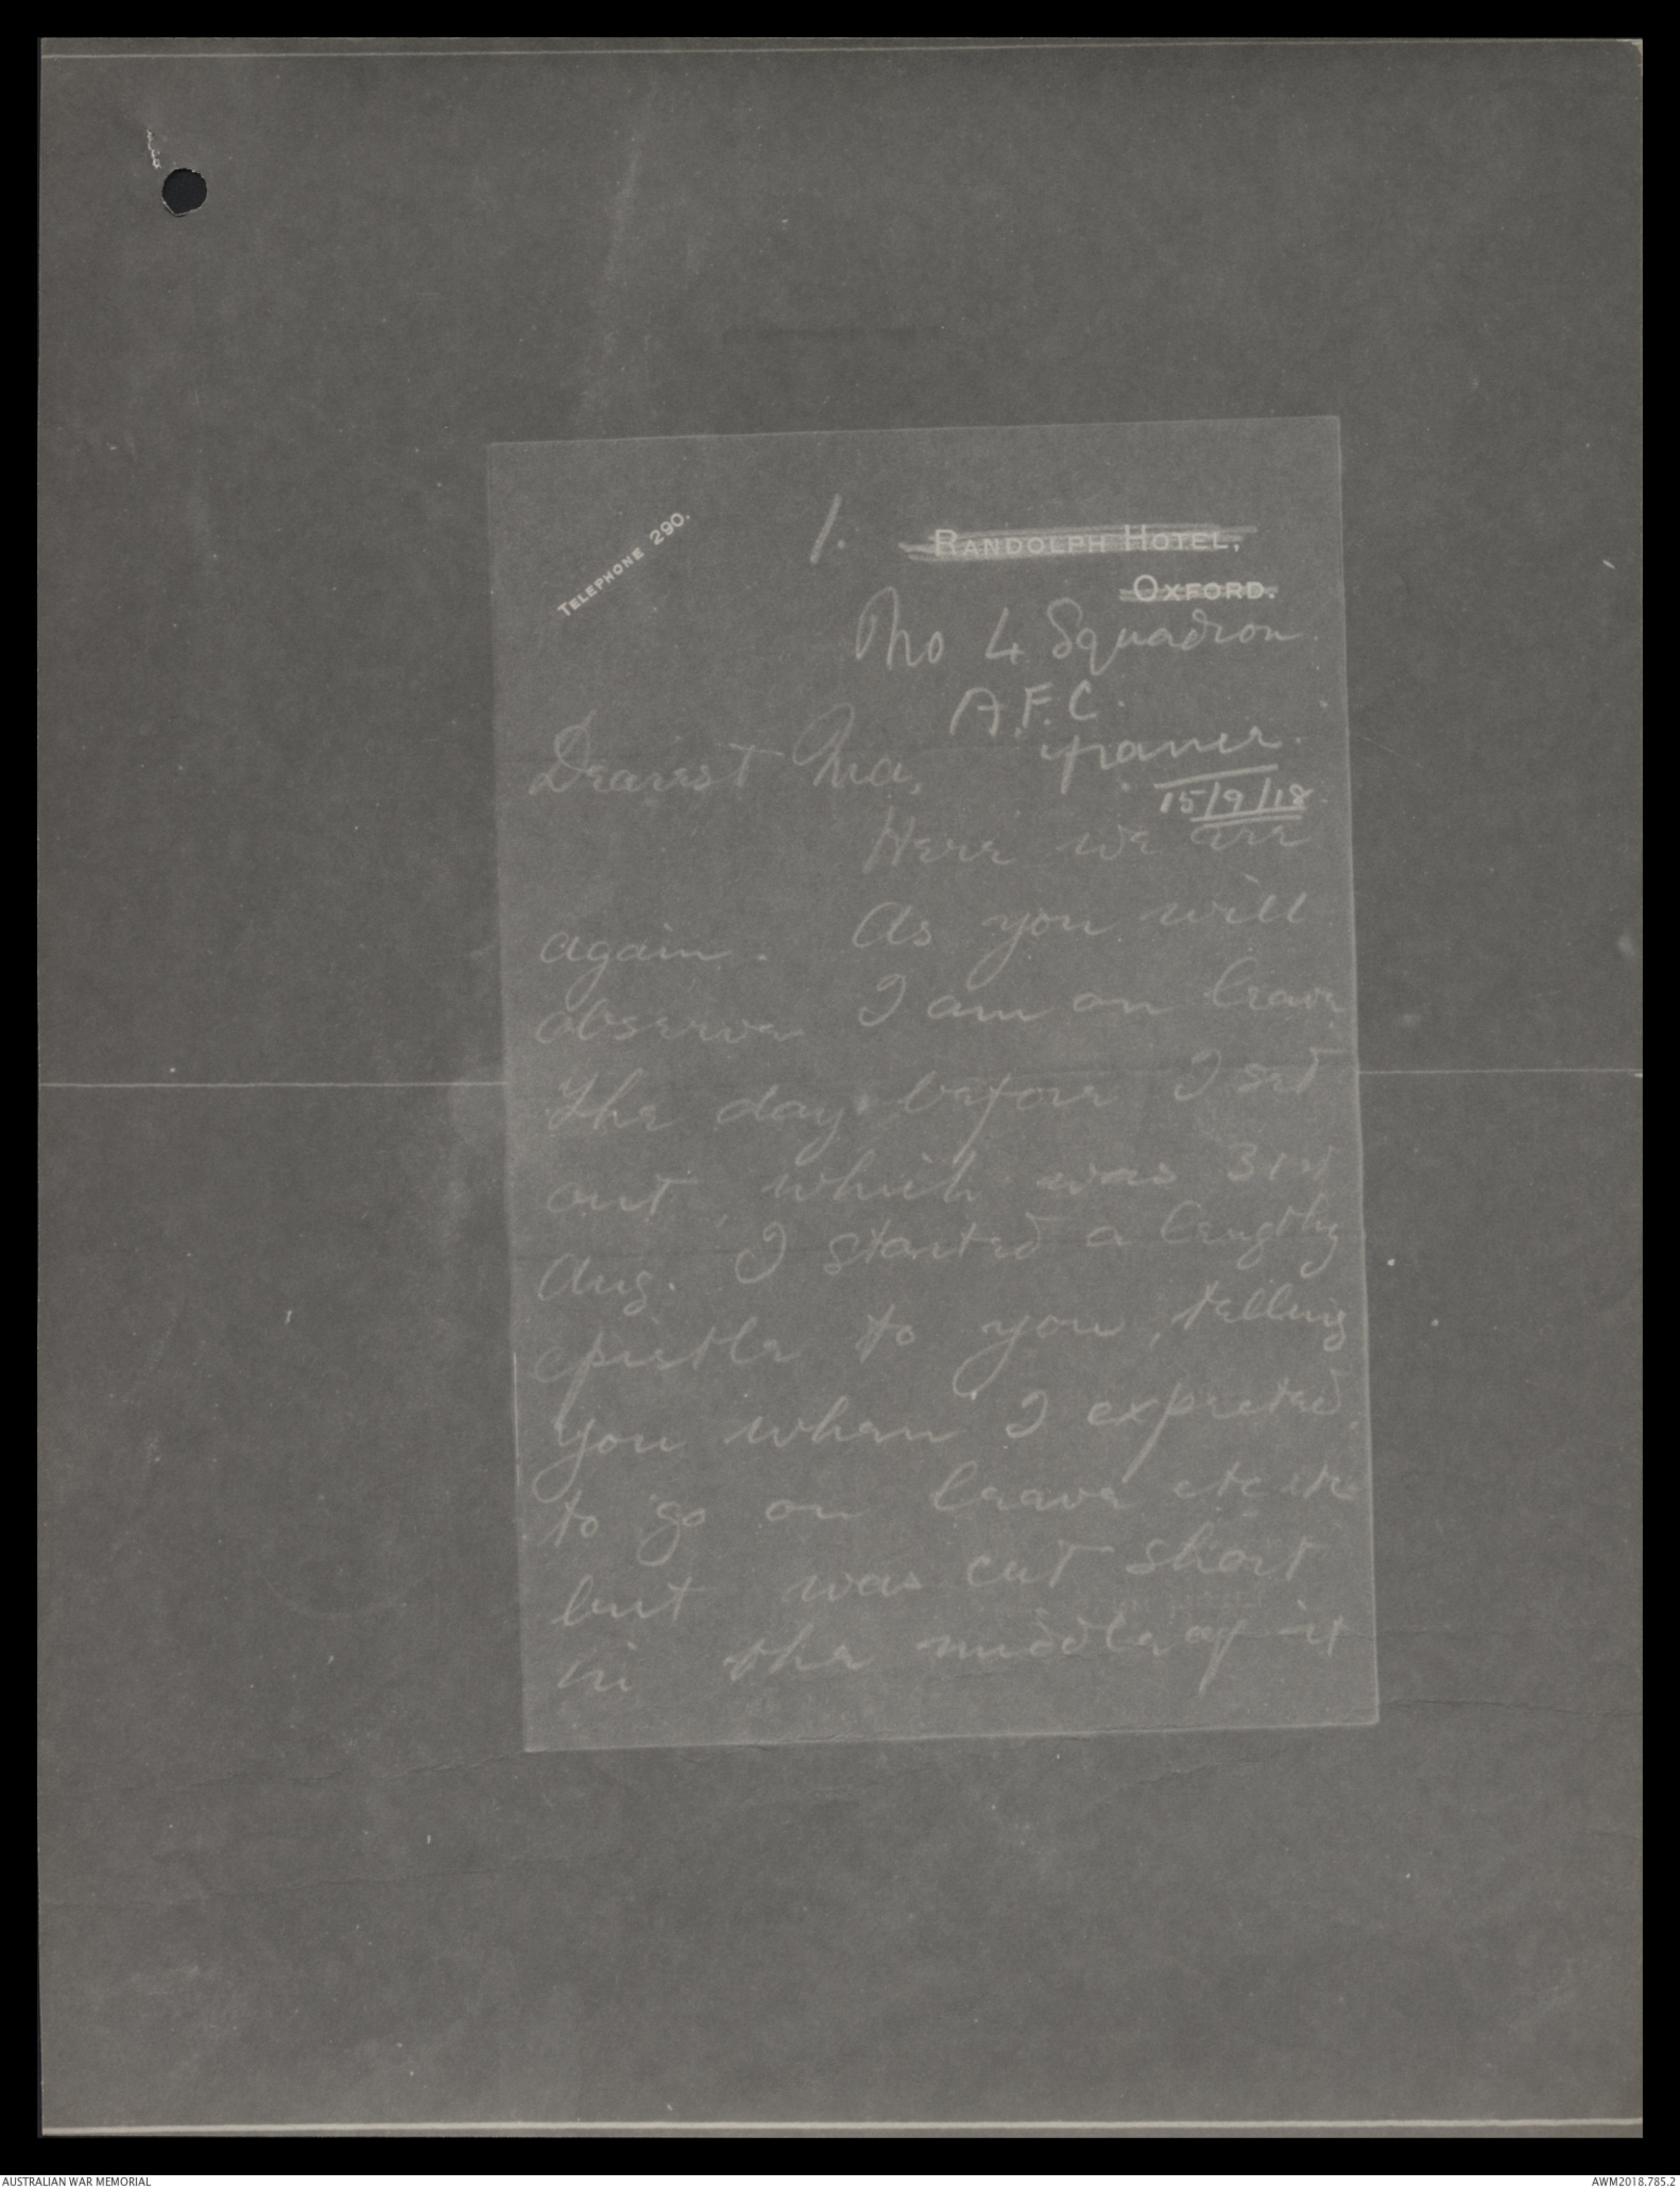 TELEPHONE 290.
1.
RANDOLPH HOTEL,
OXFORD.
No 4 Squadron.
A.F.C.
France.
15/9/18.
Dearest Ma,
Here we are
again. As you will
observe I am on leave
The day before I set
out, which was 31st
Aug. I started a lengthy
epistle to you, telling
you when I expected
to go on leave etc etc
but was cut short
in the middle of it
AUSTRALIAN WAR MEMORIAL
AWM2018.785.2